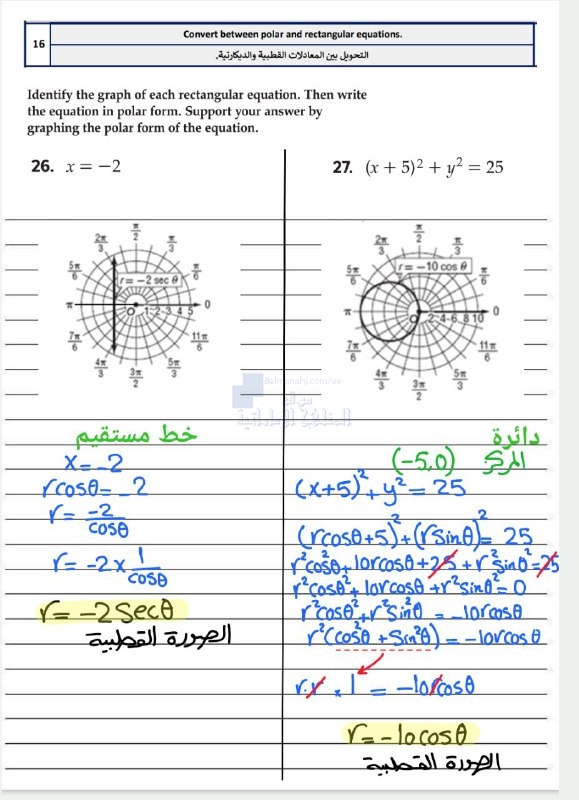 16
Convert between polar and rectangular equations.
التحويل بين المعادلات القطبية والديكارتية.
Identify the graph of each rectangular equation. Then write
the equation in polar form. Support your answer by
graphing the polar form of the equation.
26. x = −2
2π/3 π/2 π/3
5π/6 π/6
r = −2 sec θ
π O 1 2 3 4 5 0
7π/6 11π/6
4π/3 3π/2 5π/3
خط مستقيم
x = -2
r cosθ = -2
r = -2/cosθ
r = -2 × 1/cosθ
r = -2 secθ
الصورة القطبية
27. (x + 5)² + y² = 25
2π/3 π/2 π/3
5π/6 π/6
r = −10 cos θ
π O 2 4 6 8 10 0
7π/6 11π/6
4π/3 3π/2 5π/3
almanahj.com/ae
موقع
المناهج الإماراتية
دائرة
المركز (-5,0)
(x+5)² + y² = 25
(rcosθ+5)² + (rsinθ)² = 25
r²cos²θ + 10rcosθ + 25 + r²sin²θ = 25
r²cosθ² + 10rcosθ + r²sinθ² = 0
r²cosθ² + r²sin²θ = -10rcosθ
r²(cos²θ + sin²θ) = -10rcosθ
r.r × 1 = -10rcosθ
r = -10cosθ
الصورة القطبية